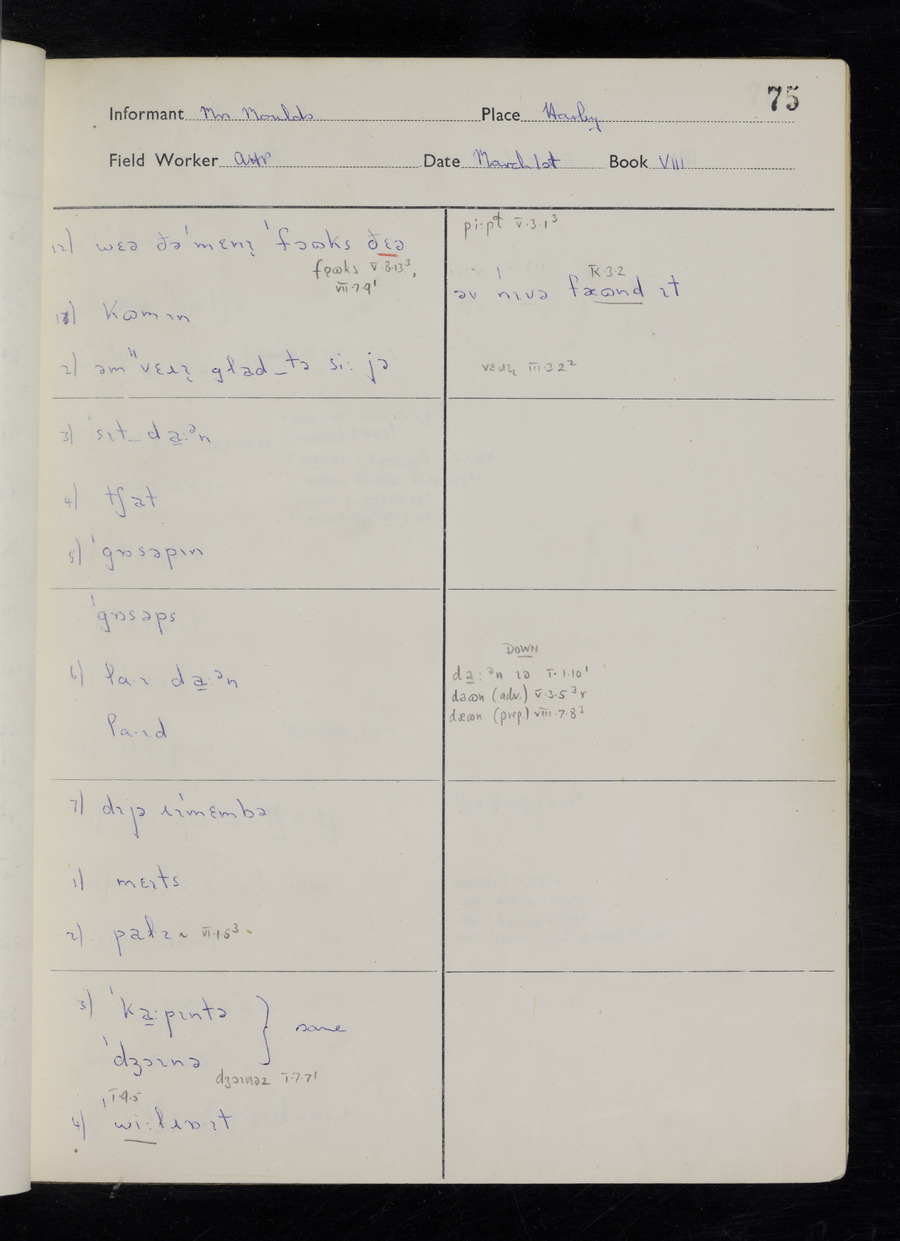 75
Informant Mrs Moulds Place Harby
Field Worker AHP Date March 1st Book VIII
12) wɛə ðə ˈmɛnɪ̨ ˈfɔɷks ðɛə
fo̜ɷks V.8.13³,
VII.7.9¹
kɷmɪn
2) əm ˈˈvɛɹɪ̨ glad_tə siː jə
3) ˈsɪt_da̠ːᵊn
4) tʃat
5) ˈgɒsəpɪn
ˈgɒsəps
6) laˑɪ da̠ːᵊn
laˑɪd
7) dɪjə ɹɪˈmɛmbə
1) mɛɪts
2) palz ~ VI.1.5³
3) ˈka̠ːpɪntə } same
ˈdʒɔɪnə
dʒɔɪnəz I.7.7¹
I.9.5
4) ˈwiːlɹɒɪt
piˑpt V.3.1³
IX.3.2
əv ˈnɪvə fæɷnd ɪt
III.3.2²
DOWN
da̠ːᵊn ɪə I.1.10¹
daɷn (adv.) V.3.5³r
dæɷn (prep.) VIII.7.8²